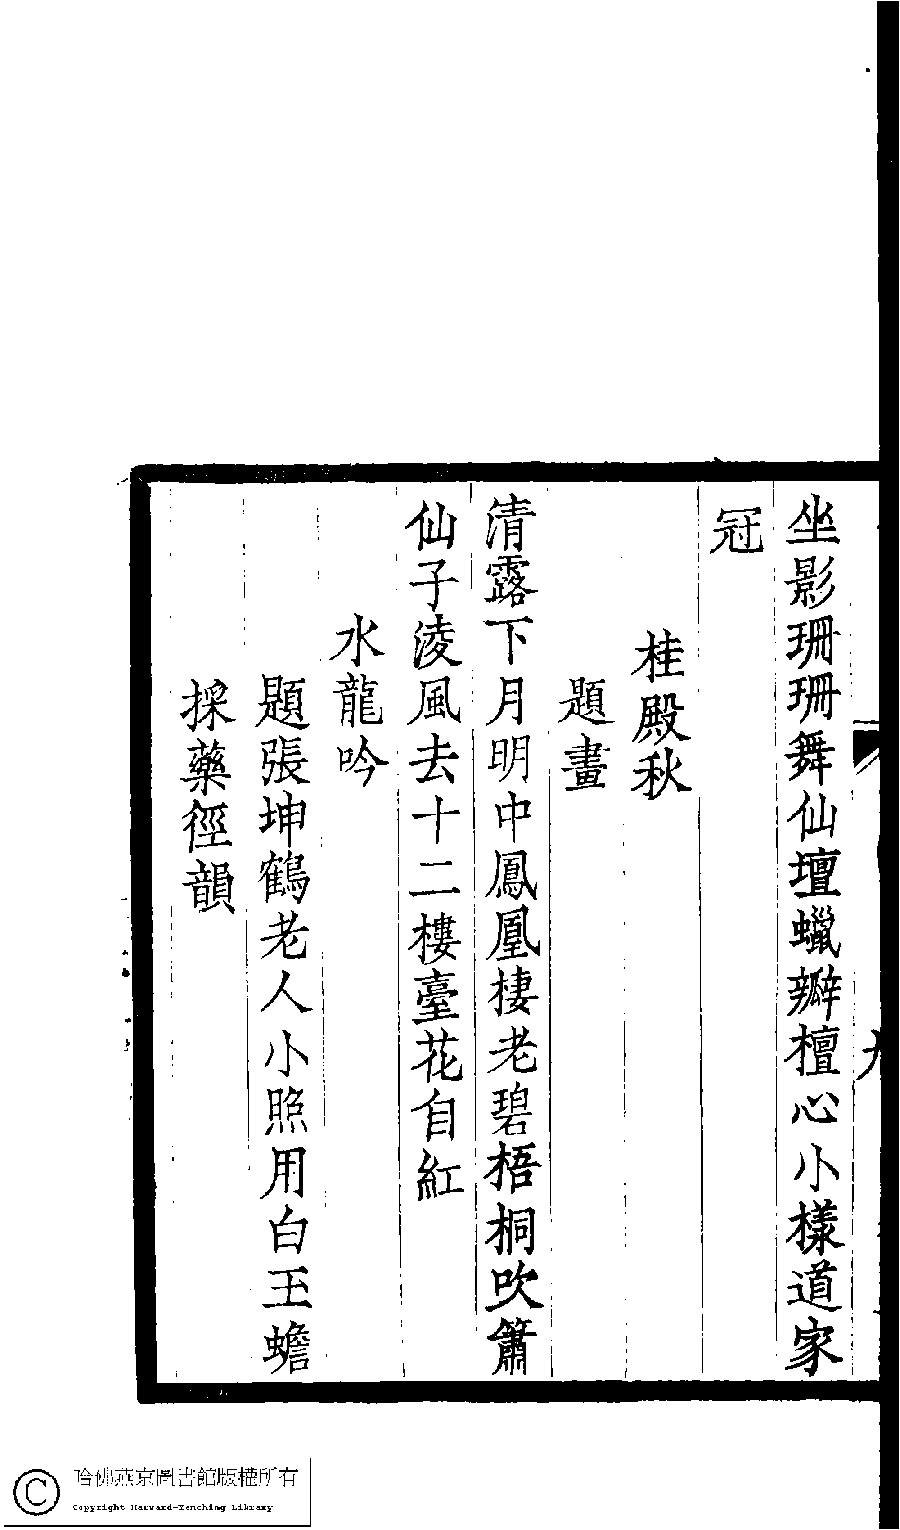 坐影珊珊舞仙壇蠟瓣檀心小樣道家
冠
桂殿秋
題畫
清露下月明中鳳凰棲老碧梧桐吹簫
仙子淩風去十二樓臺花自紅
水龍吟
題張坤鶴老人小照用白玉蟾
採藥徑韻
哈佛燕京圖書館版權所有
Copyright Harvard-Yenching Library